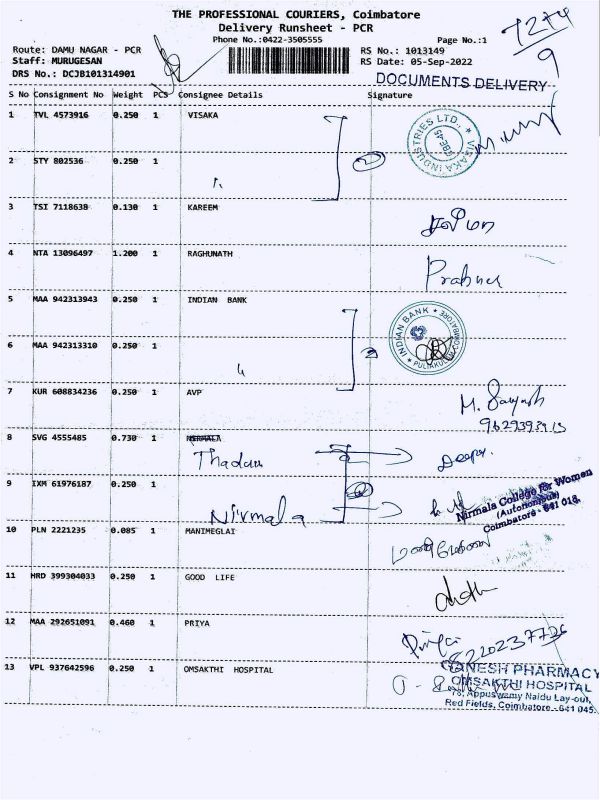 THE PROFESSIONAL COURIERS, Coimbatore
Delivery Runsheet - PCR
Phone No.:0422-3505555
Page No.:1
Route: DAMU NAGAR - PCR
Staff: MURUGESAN
DRS No.: DCJB101314901
RS No.: 1013149
RS Date: 05-Sep-2022
DOCUMENTS DELIVERY
S No Consignment No Weight PCS Consignee Details Signature
1 TVL 4573916 0.250 1 VISAKA
VISAKA INDUSTRIES LTD.
2 STY 802536 0.250 1
3 TSI 7118638 0.130 1 KAREEM
4 NTA 13096497 1.200 1 RAGHUNATH
5 MAA 942313943 0.250 1 INDIAN BANK
INDIAN BANK
6 MAA 942313310 0.250 1
7 KUR 608834236 0.250 1 AVP
8 SVG 4555485 0.730 1 NIRMALA
9 IXM 61976187 0.250 1
Nirmala
Nirmala College for Women
(Autonomous)
Coimbatore - 641 018.
10 PLN 2221235 0.085 1 MANIMEGLAI
11 HRD 399304033 0.250 1 GOOD LIFE
12 MAA 292651091 0.460 1 PRIYA
13 VPL 937642596 0.250 1 OMSAKTHI HOSPITAL
GANESH PHARMACY
OMSAKTHI HOSPITAL
78, Appuswamy Naidu Lay-out,
Red Fields, Coimbatore - 641 045.